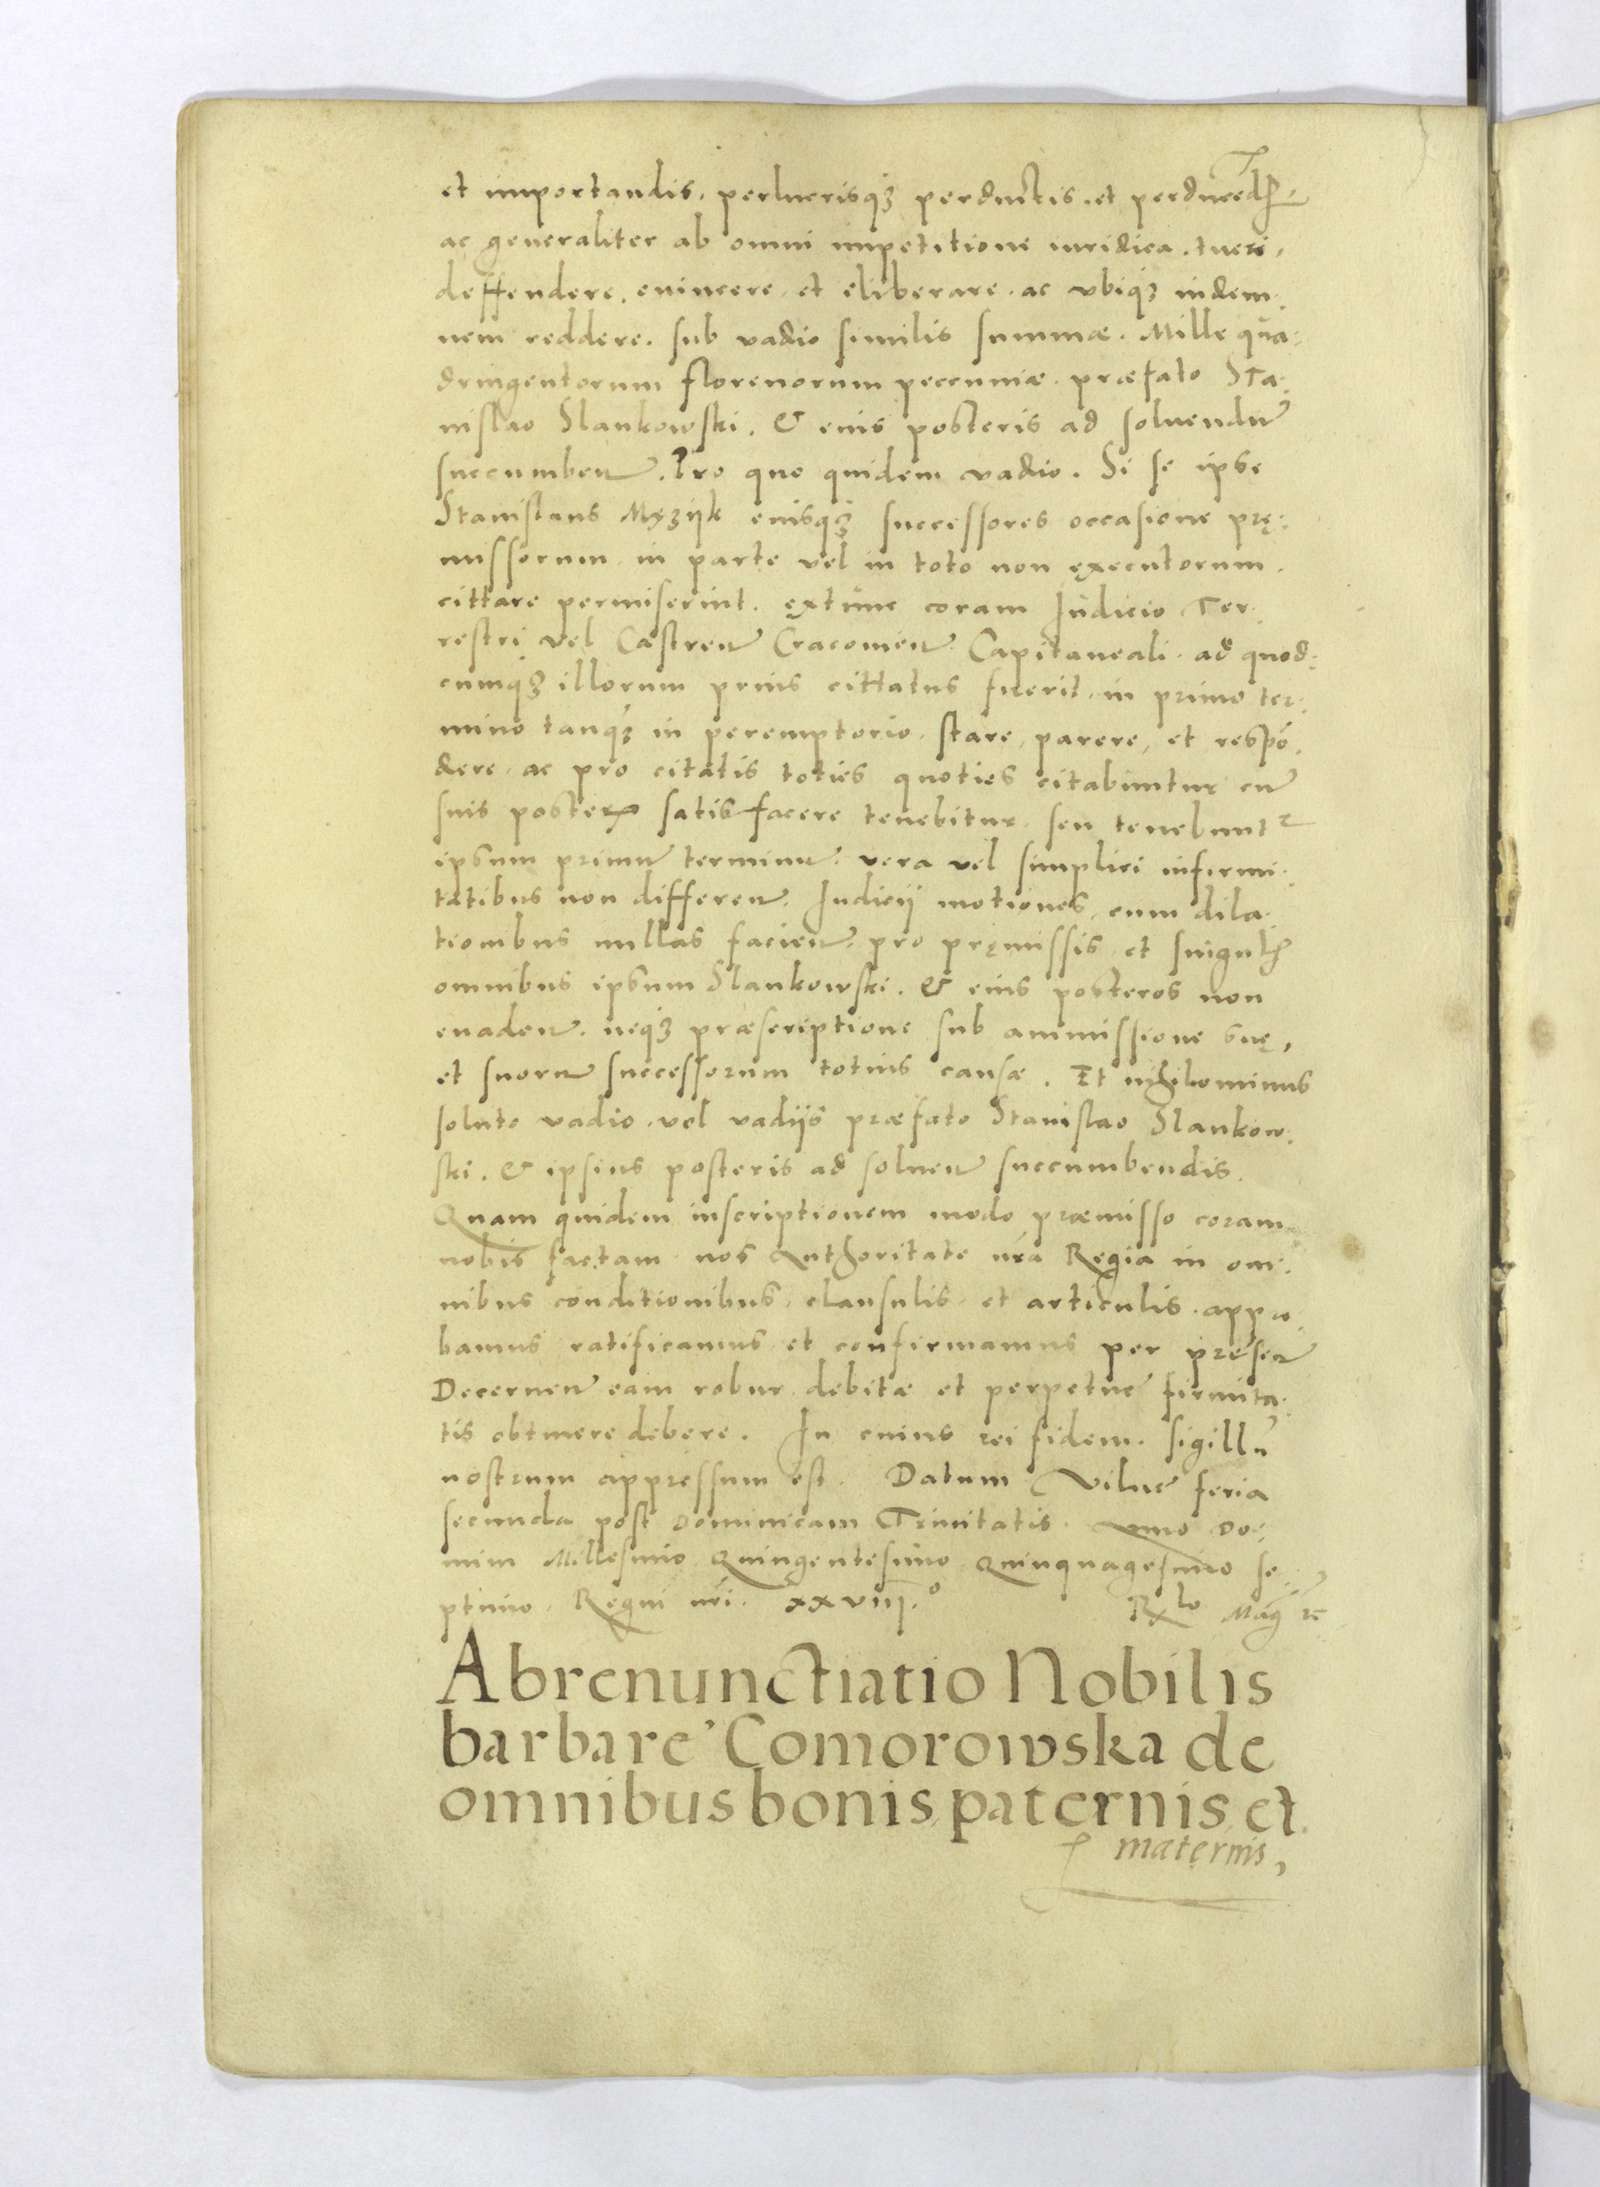 et importandis. perlucrisq3 perductis. et perducedis
ac generaliter ab omni impetitione iuridica. tueri,
deffendere, euincere, et eliberare. ac vbiq3 indem:
nem reddere. sub vadio similis summæ. Mille qua:
dringentorum florenorum peccuniæ. præfato Sta:
nislao Slankowski. & euis posteris ad soluendu
succumben. Pro quo quidem vadio. Si se ipse
Stanislaus Męzÿk eiusq3 successores occasione prę:
missorum in parte vel in toto non executorum.
cittare permiserint. extunc coram Iudicio Ter:
restri vel Castren Cracouien. Capitaneali. ad quod:
cumq3 illorum prius cittatus fuerit. in primo ter:
mino tanq3 in peremptorio. stare, parere, et respō:
dere. ac pro citatis toties quoties citabuntur cu
suis posteris satisfacere tenebitur. seu tenebunt
ipsum primu terminu. vera vel simplici infirmi:
tatibus non differen. Iudicij motiones, cum dila:
tionibus nullas facien. pro pręmissis et singulis
omnibus ipsum Slankowski. & eius posteros non
euaden. neq3 præscriptione sub ammissione suę,
et suoru successorum totius causæ. Et nihilominus
soluto vadio. vel vadijs præfato Stanislao Slankow:
ski. & ipsius posteris ad soluen succumbendis.
Quam quidem inscriptionem modo præmisso coram
nobis factam. nos Authoritate nr̄a Regia in om:
nibus conditionibus. clausulis. et articulis. appro:
bamus ratificamus et confirmamus per presen
Decernen eam robur debitæ et perpetue firmita:
tis obtinere debere. In cuius rei fidem. sigillū
nostrum appressum est. Datum Vilnæ feria
secunda post dominicam Trinitatis. Anno Do:
mini Millesimo Quingentesimo Quinquagesimo se:
ptimo. Regni nr̄i. XXVIIIº Rlo Mag rc
Abrenunctiatio Nobilis
barbare Comorowska de
omnibus bonis paternis et
maternis,